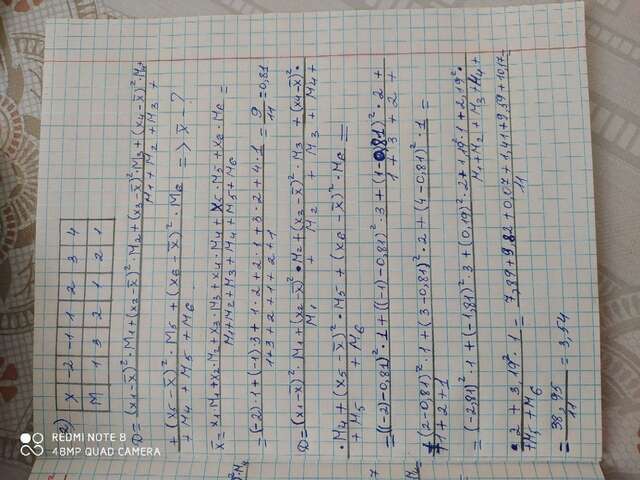 2)
X -2 -1 1 2 3 4
M 1 3 2 1 2 1
D = (x₁-x̄)²·M₁+(x₂-x̄)²·M₂+(x₃-x̄)²·M₃+(x₄-x̄)²·M₄+
M₁+M₂+M₃+
+(x₅-x̄)²·M₅+(x₆-x̄)²·M₆ => x̄ - ?
+M₄+M₅+M₆
x̄ = x₁M₁+x₂·M₂+x₃·M₃+x₄·M₄+x₅·M₅+x₆·M₆ =
M₁+M₂+M₃+M₄+M₅+M₆
= (-2)·1+(-1)·3+1·2+2·1+3·2+4·1 = 9 = 0,81
1+3+2+1+2+1 11
D = (x₁-x̄)²·M₁+(x₂-x̄)²·M₂+(x₃-x̄)²·M₃+(x₄-x̄)²·
M₁ + M₂ + M₃ + M₄+
·M₄+(x₅-x̄)²·M₅+(x₆-x̄)²·M₆ =
+M₅ + M₆
= ((-2)-0,81)²·1+((-1)-0,81)²·3+(1-0,81)²·2+
1+3+2+
+(2-0,81)²·1+(3-0,81)²·2+(4-0,81)²·1 =
+1+2+1
= (-2,81)²·1+(-1,81)²·3+(0,19)²·2+1,19²·1+2,19²·
M₁+M₂+M₃+M₄+
·2+3,19²·1 = 7,89+9,82+0,07+1,41+9,59+10,17 =
+M₅+M₆ 11
= 38,95 = 3,54
11
REDMI NOTE 8
48MP QUAD CAMERA